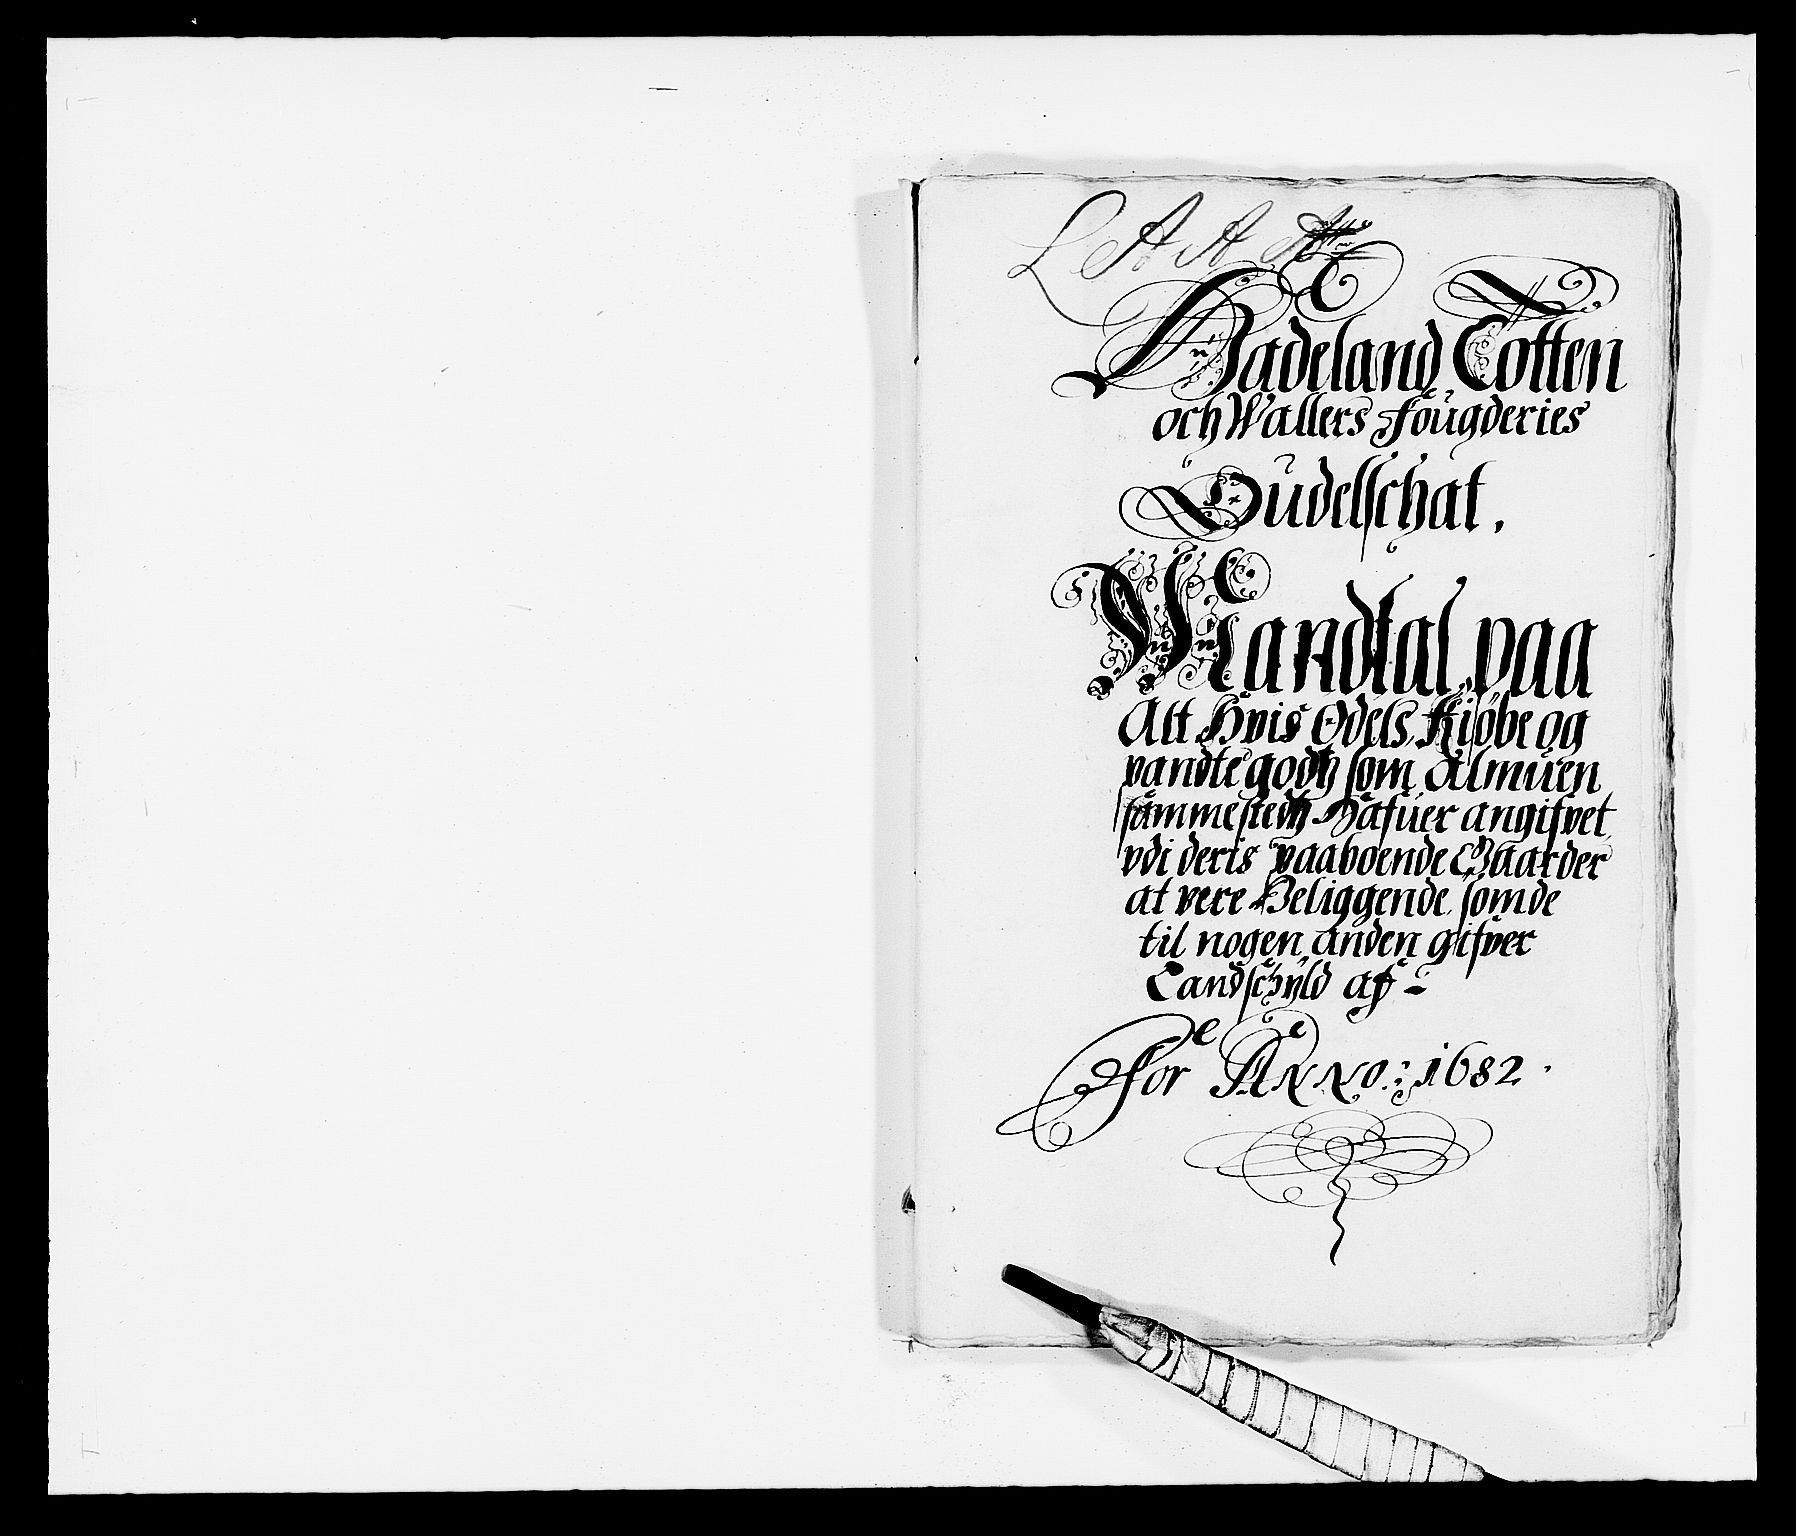 L A A A
Hadeland Totten
och Wallers Foügderies
Oüdelschat.
Mandtal paa
Alt Hvis Odels, Kiøbe og
pandte godtz som Almuen
sammestedtz Hafuer angifvet
vdi deris paaboende Gaarder
at vere Beliggende, som de
til nogen anden gifver
Landschyld af
For ANNO: 1682.